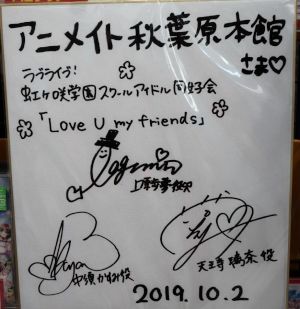 アニメイト秋葉原本館
さま♡
ラブライブ!
虹ヶ咲学園スクールアイドル同好会
「Love U my friends」
上原歩夢役
中須かすみ役
天王寺璃奈役
2019.10.2